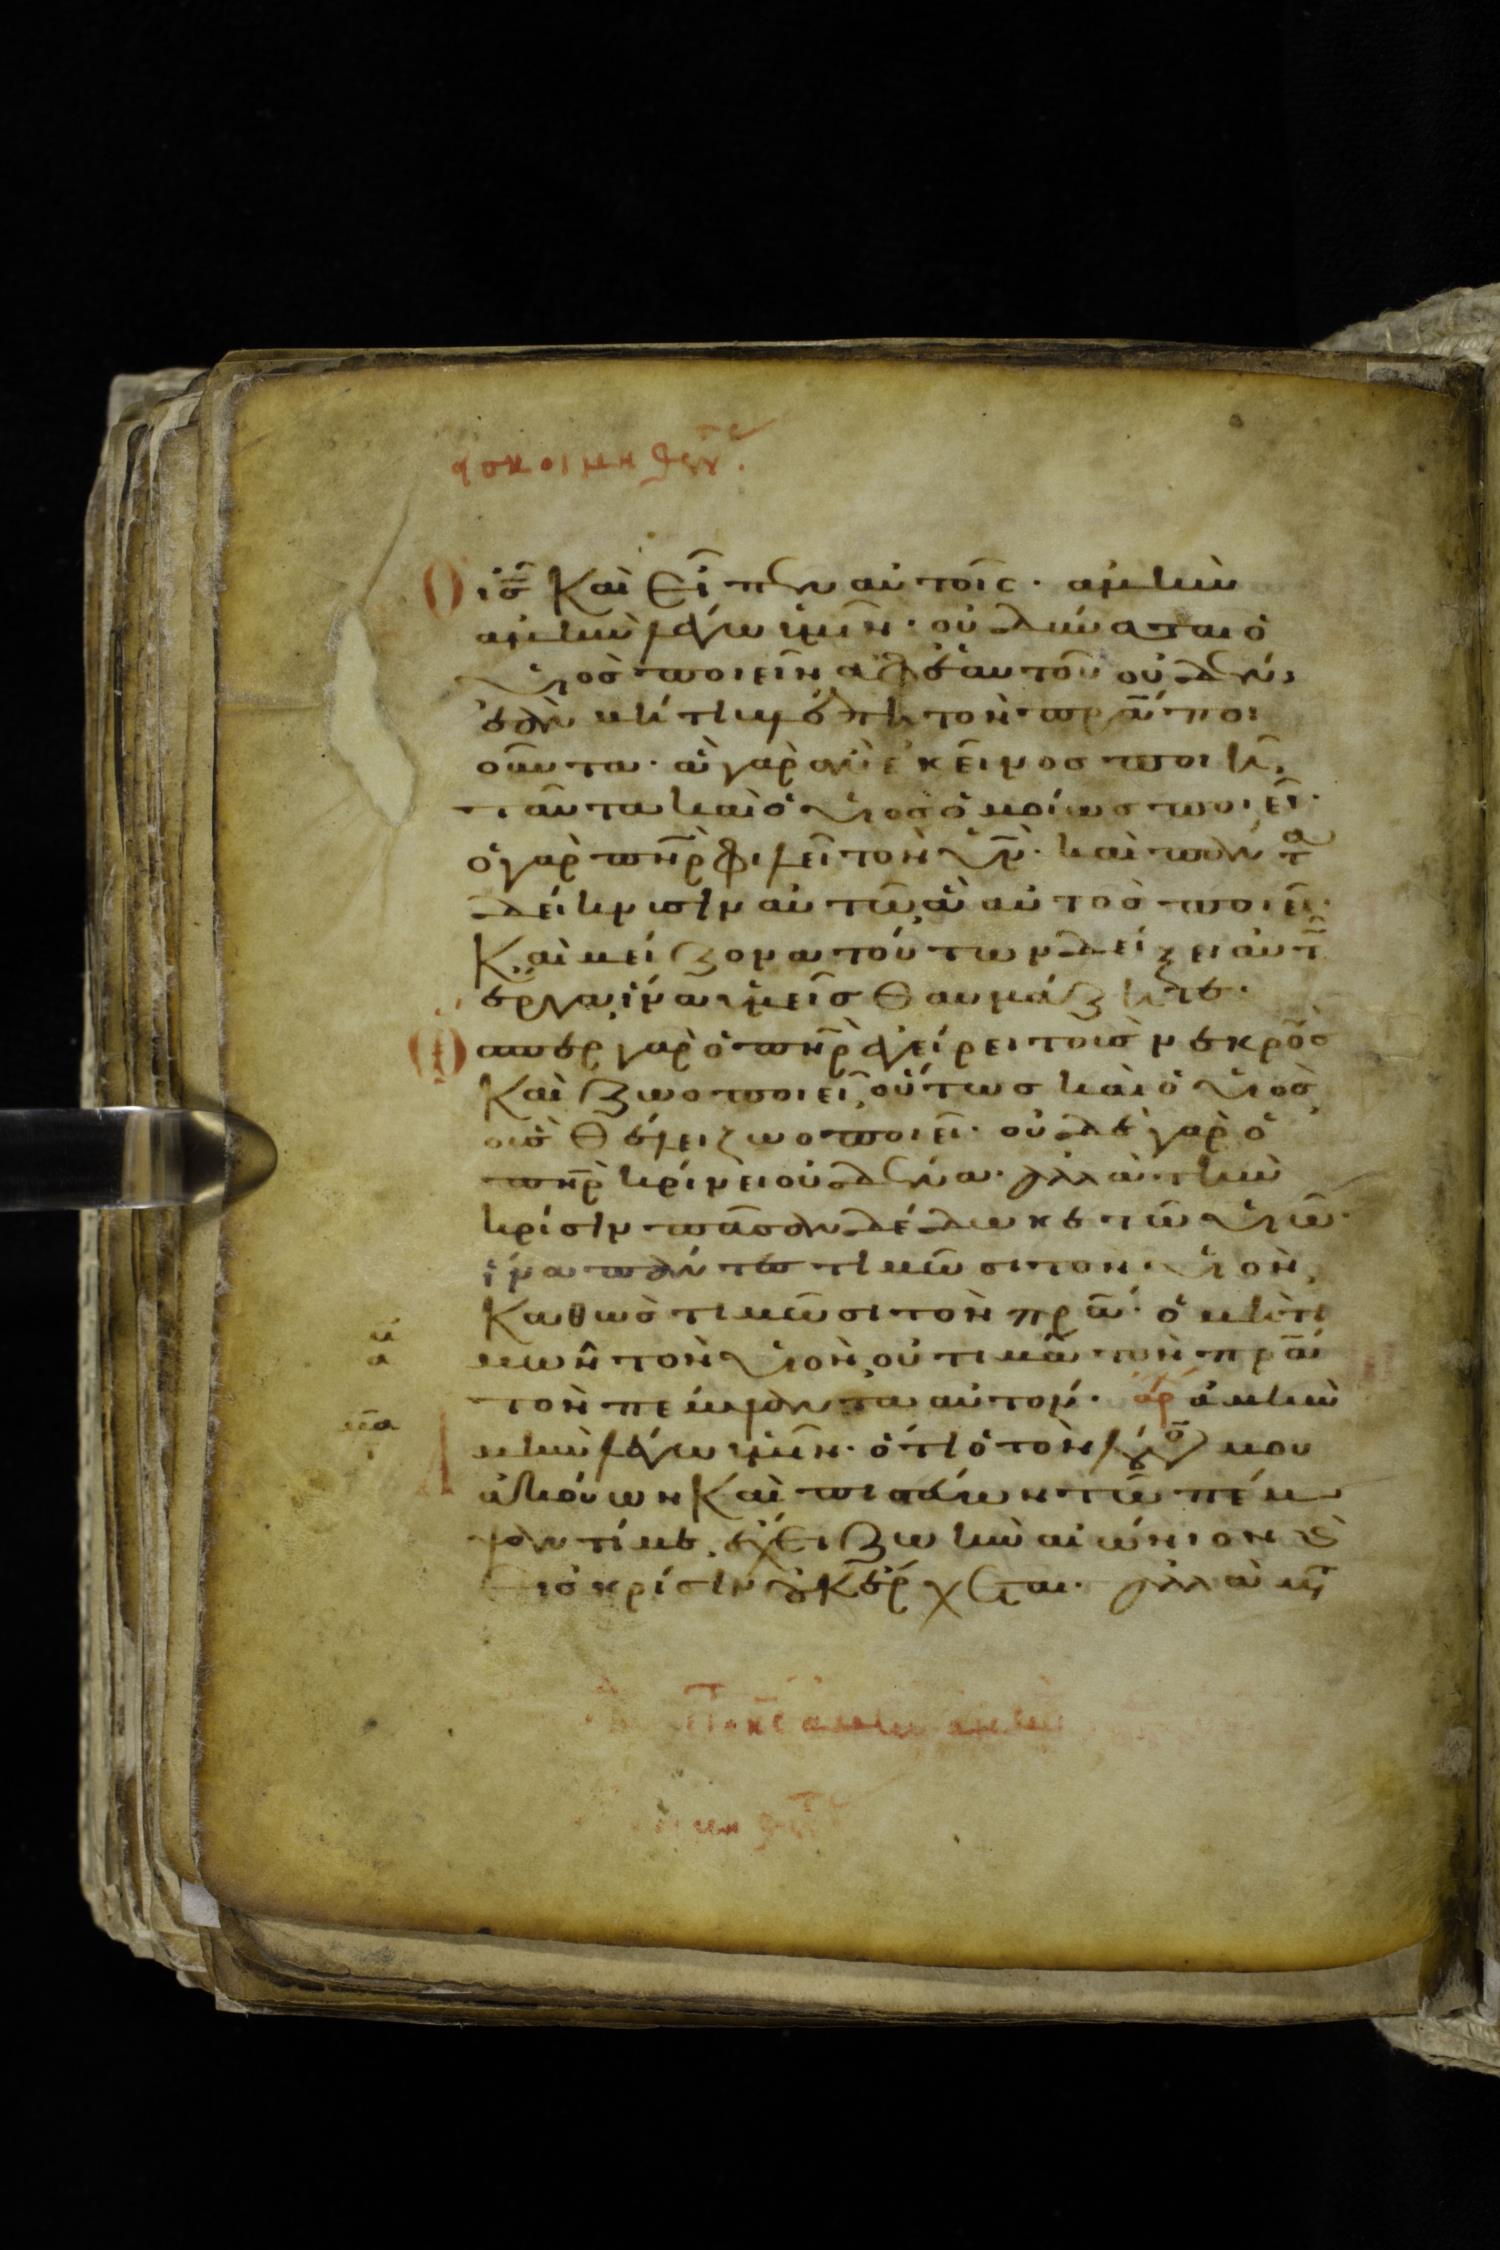 ὁ ἰς̅ Καὶ Εἶπεν αὐτοῖς· ἀμὴν
ἀμὴν λέγω ὑμῖν· οὐ δύναται ὁ
υἱὸς ποιεῖν ἀφ' ἑαυτοῦ οὐδέν,
ἐὰν μή τι βλέπη τὸν πρ̅α ποι
οῦντα· ἃ γὰρ ἂν ἐκεῖνος ποιῆ,
ταῦτα καὶ ὁ υἱὸς ὁμοίως ποιεῖ·
ὁ γὰρ πη̅ρ φιλεῖ τὸν υν̅· καὶ πάντα
δείκνυσιν αὐτῶ, ἃ αὐτὸς ποιεῖ·
Καὶ μείζονα τούτων δείξει αὐτ
ἔργα, ἵνα ὑμεῖς θαυμάζητε·
ὥσπερ γὰρ ὁ πη̅ρ ἐγείρει τοὺς νεκροὺς
Καὶ ζωοποιεῖ, οὕτως καὶ ὁ υἱὸς,
οὓς θέλει ζωοποιεῖ· οὐδὲ γὰρ ὁ
πη̅ρ κρίνει οὐδένα· ἀλλὰ τὴν
κρίσιν πᾶσαν δέδωκε τῶ υἱῶ·
ἵνα πάντες τιμῶσι τὸν υἱὸν,
Καθὼς τιμῶσι τὸν πρ̅α· ὁ μὴ τι
μῶν τὸν υἱὸν, οὐ τιμᾶ τὸν πρ̅α
τὸν πέμψαντα αὐτόν· ἀρ ἀμὴν
ἀμὴν λέγω ὑμῖν· ὅτι ὁ τὸν λόγον μου
ἀκούων Καὶ πιστεύων τῶ πέμ
ψαντί με, ἔχει ζωὴν αἰώνιον καὶ
εἰς κρίσιν οὐκ ἔρχεται· ἀλλὰ μ